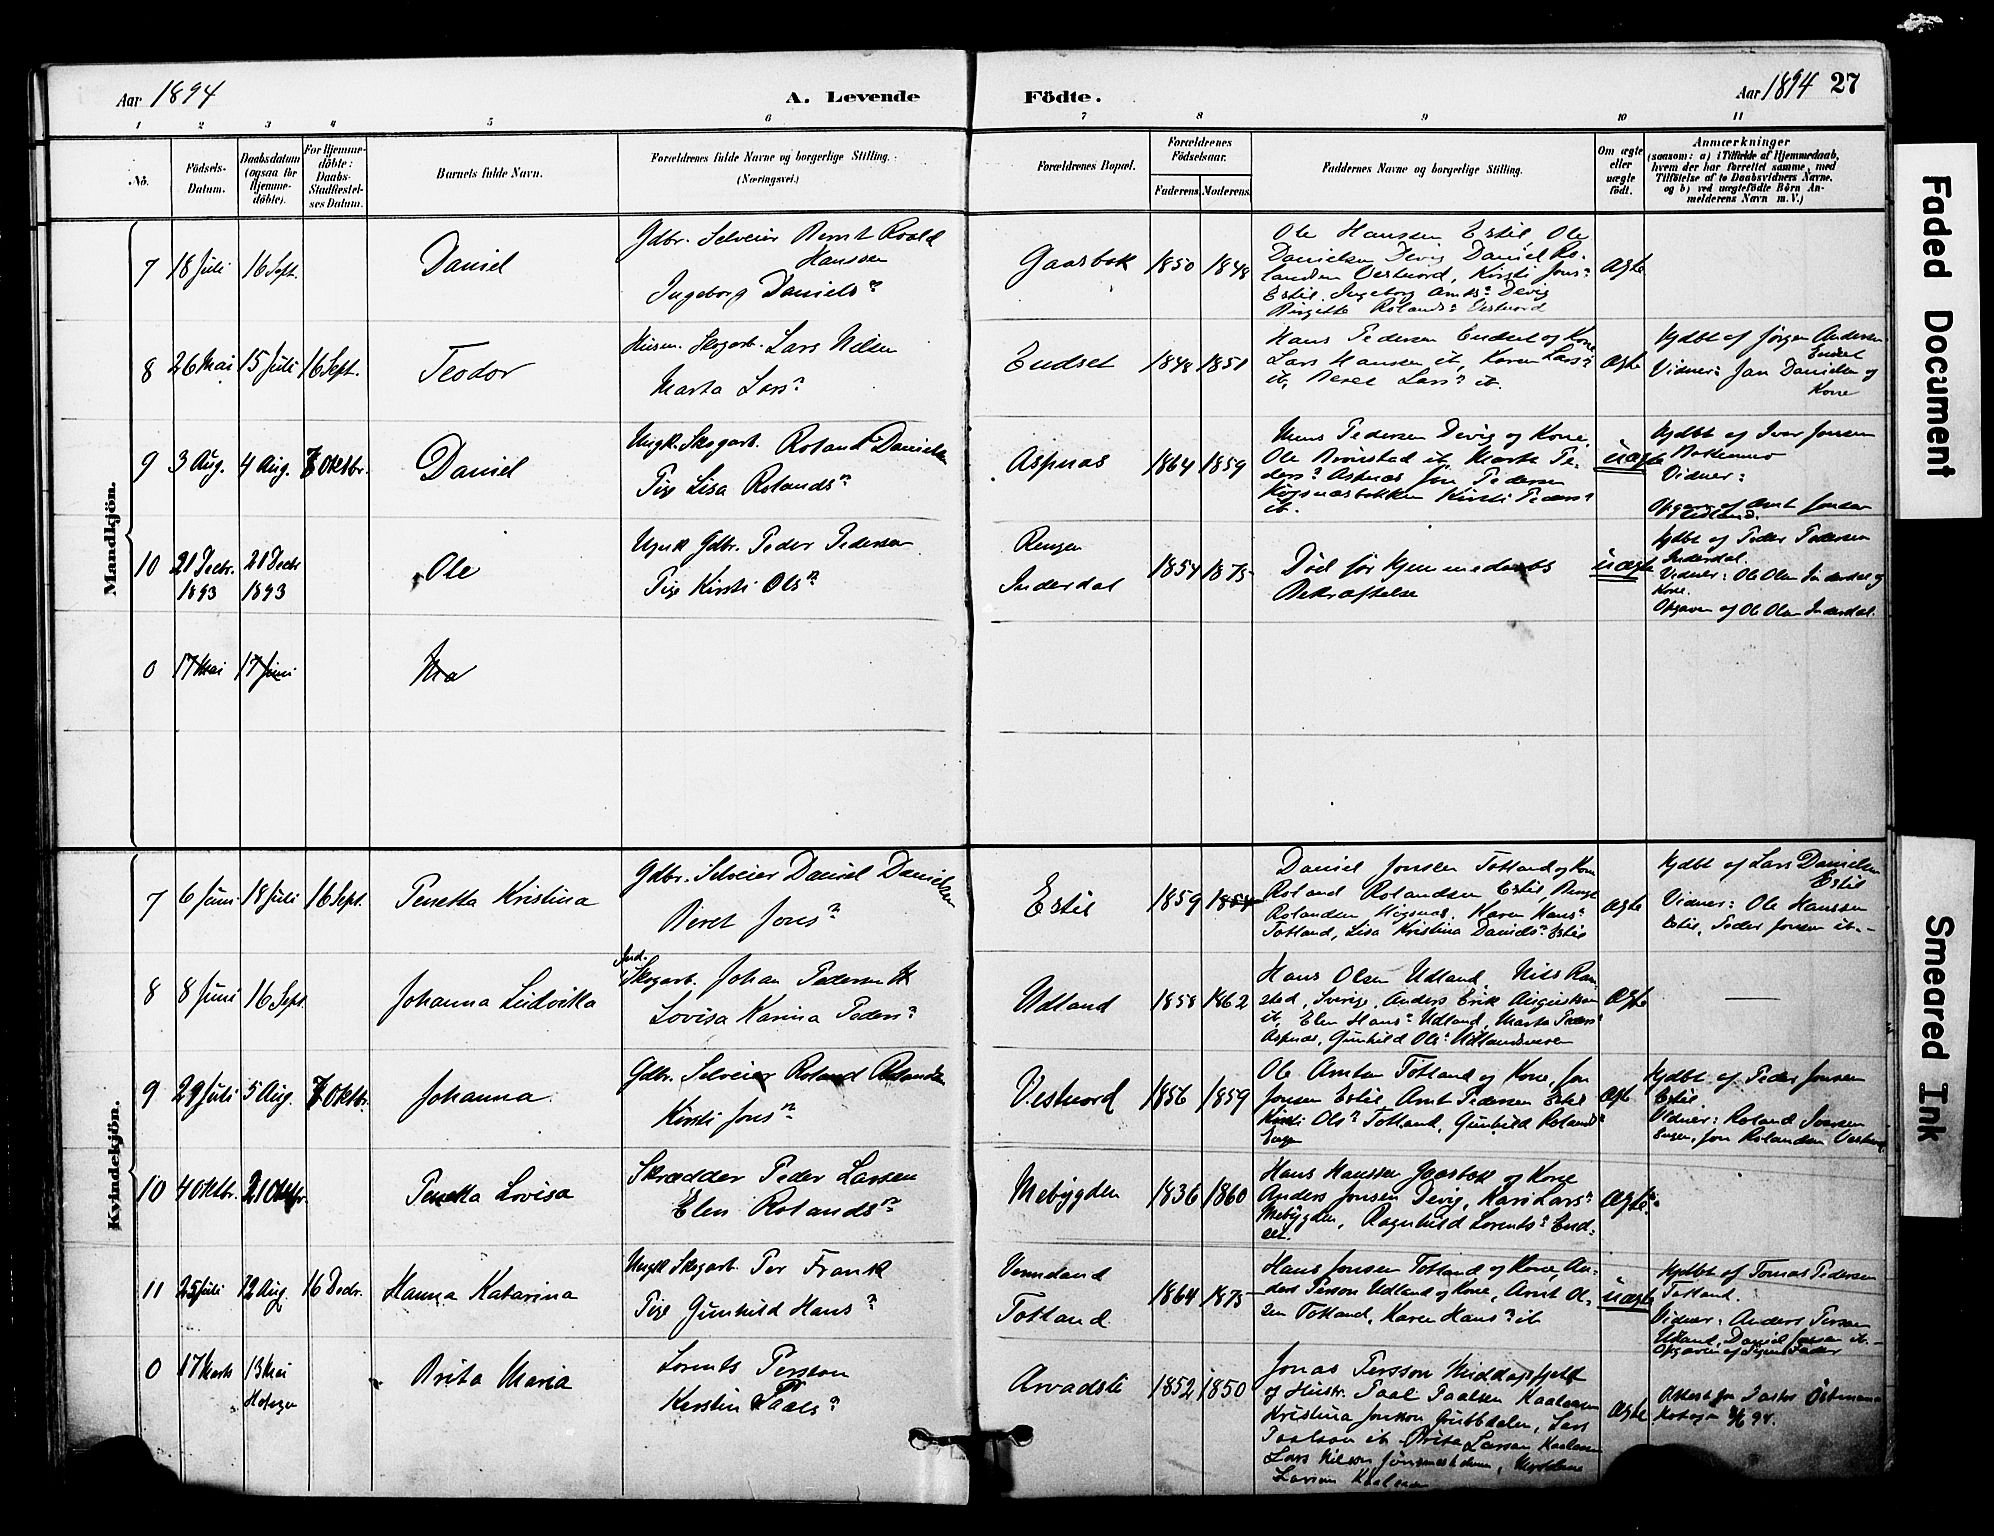 Aar 1894
A. Levende
Födte.
Aar 1894 27
1 2 3 4 5 6 7 8 9 10 11
No.
Födsels-
Datum.
Daabsdatum
(ogsaa for
Hjemme-
döbte).
For Hjemme-
döbte:
Daabs-
Stadfæstel-
ses Datum.
Barnets fulde Navn.
Forældrenes fulde Navne og borgerlige Stilling.
(Næringsvei.)
Forældrenes Bopæl.
Forældrenes
Födselsaar.
Faderens. Moderens.
Faddernes Navne og borgerlige Stilling.
Om ægte
eller
uægte
födt.
Anmærkninger
(saasom: a) i Tilfælde af Hjemmedaab,
hvem der har forrettet samme, med
Tilföielse af to Daabsvidners Navne,
og b) ved uægtefödte Börn An-
melderens Navn m. V.)
Mandkjön.
7 18 Juli 16 Sept. Daniel
Gdbr. Selveier Bernt Roald
Hanssen
Ingeborg Daniels n
Gaasbak 1850 1848
Ole Hanssen Estil, Ole
Danielsen Devig Daniel Ro-
landsen Vestnord, Kirsti Jons n
Estil. Ingeborg Arnts n Devig
Birgitte Rolands n Vestnord
ægte
8 26 Mai 15 Juli 16 Sept. Teodor
Husm. Skogarb. Lars Nilsen
Marta Lars n
Endset 1848 1851
Hans Pedersen Endset og Kone
Lars Hansen it, Karen Lars n
it, Beret Lars n it.
ægte
Hjdbt af Jørgen Andersen
Endset
Vidner: Jon Danielsen og
Kone
9 3 Aug. 4 Aug. 7 Oktbr. Daniel
Ungk. Skogarb. Roland Danielsen
Pige Lisa Rolands n
Aspnæs 1864 1859
Mons Pedersen Devig og Kone,
Ole Brønstad it, Marta Pe-
ders n Aspnæs Jon Pedersen
Kirsti Peders n
it.
uægte
Hjdbt af Ivar Jonsen
Vidner:
Opgaven af Arnt Jonsen
Udland.
10 21 Decbr. 1893 21 Decbr 1893 Ole
Ungk Gdbr. Peder Pedersen
Pige Kirsti Ols n
Rengen
Inderdal
1854 1875
Död før Hjemmedaabs
Bekræftelse
uægte
Hjdbt af Peder Pedersen
Inderdal.
Vidner: Ole Olsen Inderdal og
Kone.
Opgaven af Ole Olsen Inderdal.
0 17 Mai 17 Juni
Kvindekjön.
7 6 Juni 18 Juli 16 Sept. Penetta Kristina
Gdbr. Selveier Daniel Danielsen
Beret Jons n
Estil 1859 1854
Daniel Jonsen Totland og Kone
Roland Rolandsen Estil, Bernt
Rolandsen Høgnæs, Karen Hans n
Totland, Lisa Kristina Daniels n Estil
ægte
Hjdbt af Lars Danielsen
Estil
Vidner: Ole Hanssen
Estil, Peder Jonsen it.-
8 8 Juni 16 Sept. Johanna Ludvikka
Ind.
Skogarb. Johan Pedersen
Lovisa Karina Peders n
Udland 1858 1862
Hans Olsen Udland, Nils Ran-
sted, Sverige, Anders Erik Augustson
it, Elen Hans n Udland, Marta Peders n
Aspnæs, Gunhild Ols n
ægte
9 29 Juli 5 Aug. 7 Oktbr. Johanna
Gdbr. Selveier Roland Rolandsen
Kirsti Jons n
Vestnord 1856 1859
Ole Arntsen Totland og Kone, Jon
Jonsen Estil Arnt Pedersen Estil
Kirsti Ols n Totland, Gunhild Rolands n
Engen
ægte
Hjdbt af Peder Jonsen
Estil
Vidner: Roland Ivarsen
Engen, Jon Rolandsen Vestnord
10 4 Oktbr. 21 Oktbr Penetta Lovisa
Skrædder Peder Larsen
Elen Rolands n
Mebygden 1836 1860
Hans Hanssen Gaasbak og Kone
Anders Jonsen Devig, Kari Lars n
Mebygden, Ragnhild Lorents n End-
set.
ægte.
11 25 Juli 12 Aug. 16 Decbr. Hanna Katarina
Ungk Skogarb. Per Frank
Pige Gunhild Hans n
Vemdand
Totland
1864 1875
Hans Jonsen Totland og Kone, An-
ders Persson Udland og Kone, Arnt Ol-
sen Totland, Karen Hans n it
uægte
Hjdbt af Tomas Pedersen
Totland.
Vidner: Anders Person
Udland, Daniel Jonsen it.-
Opgaven af Pigens Fader
0 17 Marts 13 Mai
Hotagen
Brita Maria
Lorents Persson
Kerstin Paals n
Arvadsli 1852 1850
Jonas Persson Middagsfjeld
og Hustr. Paal Paalsen Kaalaasen
Kristina Jonsson Grubbdalen, Lars
Paalson it. Brita Larsson Kaalaasen
Lars Nilsson
Larsson Kaalaasen
ægte
Attest fra Pastor Östman
Hotagen 94.
Faded Document
Smeared Ink